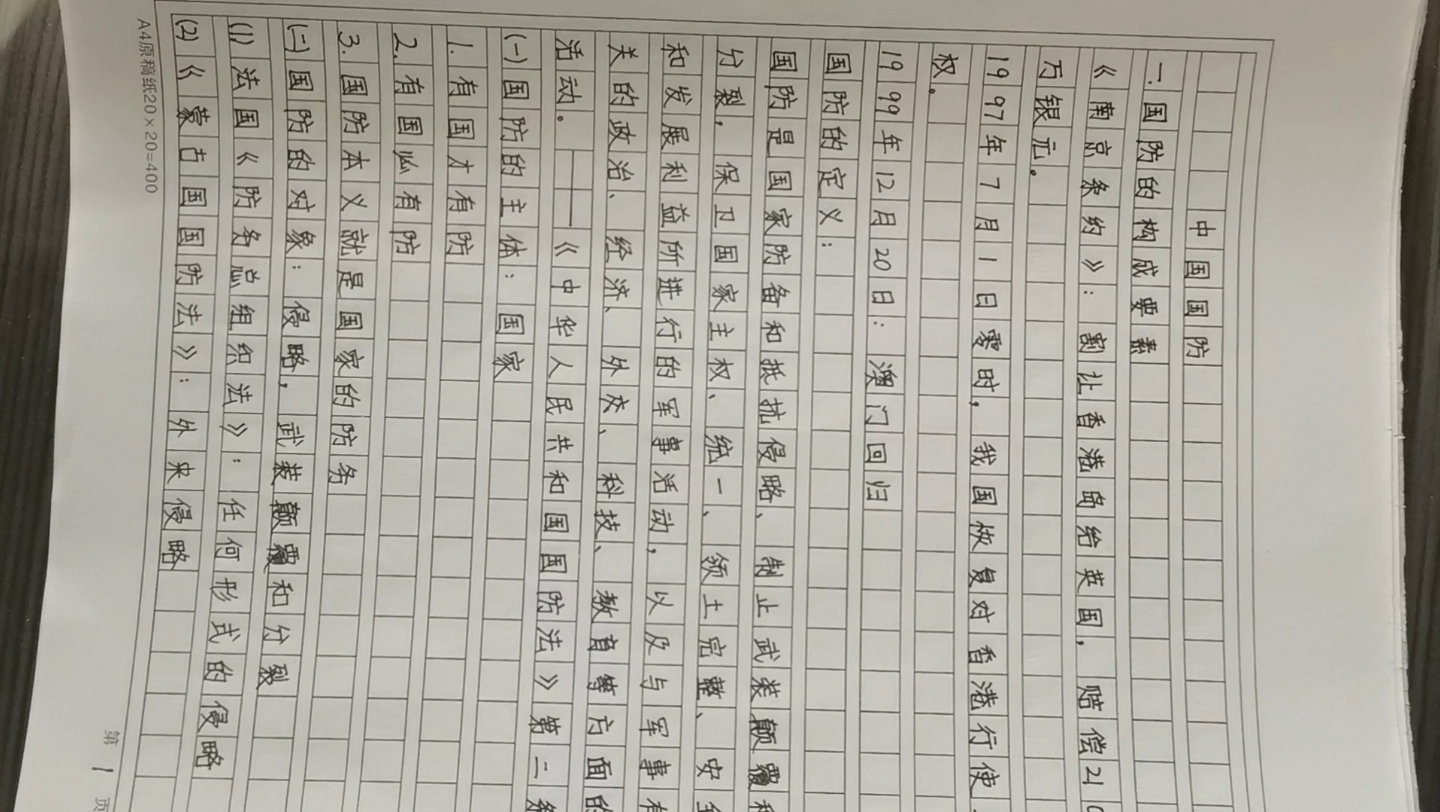 中国国防
一.国防的构成要素
《南京条约》：割让香港岛给英国，赔偿21
万银元。
1997年7月1日零时，我国恢复对香港行使
权。
1999年12月20日：澳门回归
国防的定义：
国防是国家防备和抵抗侵略、制止武装颠覆和
分裂，保卫国家主权、统一、领土完整、安全
和发展利益所进行的军事活动，以及与军事有
关的政治、经济、外交、科技、教育等方面的
活动。——《中华人民共和国国防法》第二条
(一)国防的主体：国家
1.有国才有防
2.有国必有防
3.国防本义就是国家的防务
(二)国防的对象：侵略，武装颠覆和分裂
(1)法国《防务总组织法》：任何形式的侵略
(2)《蒙古国国防法》：外来侵略
A4原稿纸20×20=400
第1页